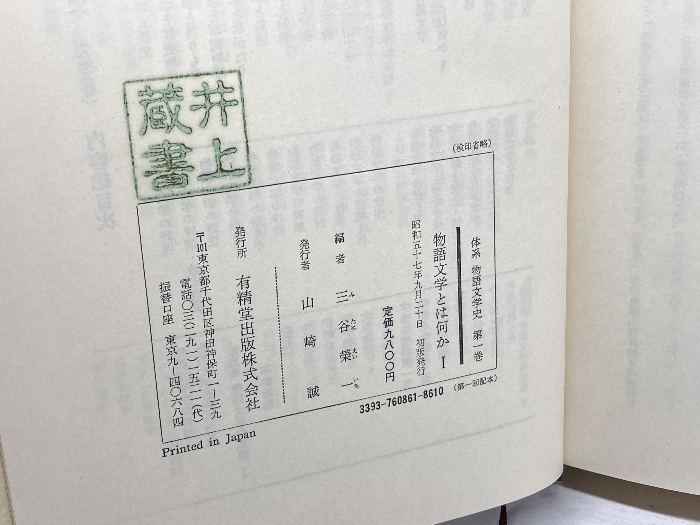 井上
蔵書
(検印省略)
体系 物語文学史 第一巻
物語文学とは何か Ⅰ
昭和五十七年九月二十日 初版発行
定価九八〇〇円
編者 三谷榮一
み たに えい いち
発行者 山崎誠
発行所 有精堂出版株式会社
〒101東京都千代田区神田神保町一ー三九
電話〇三(二九一)一五二一(代)
振替口座 東京九ー四〇六八四
3393-760861-8610 (第一回配本)
Printed in Japan